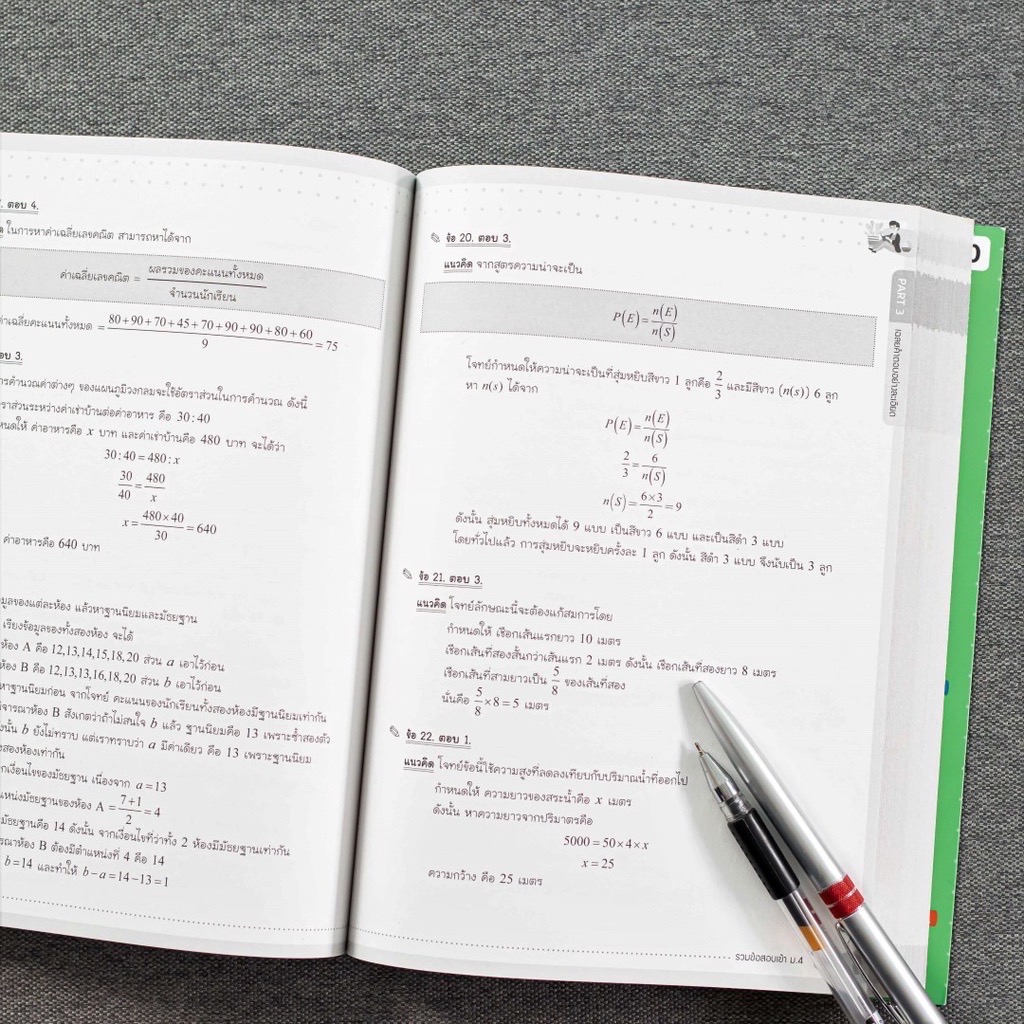 . ตอบ 4.
ในการหาค่าเฉลี่ยเลขคณิต สามารถหาได้จาก
ค่าเฉลี่ยเลขคณิต = ผลรวมของคะแนนทั้งหมด / จำนวนนักเรียน
ค่าเฉลี่ยคะแนนทั้งหมด = (80+90+70+45+70+90+90+80+60)/9 = 75
อบ 3.
ารคำนวณค่าต่างๆ ของแผนภูมิวงกลมจะใช้อัตราส่วนในการคำนวณ ดังนี้
ราส่วนระหว่างค่าเช่าบ้านต่อค่าอาหาร คือ 30:40
หนดให้ ค่าอาหารคือ x บาท และค่าเช่าบ้านคือ 480 บาท จะได้ว่า
30:40 = 480:x
30/40 = 480/x
x = (480×40)/30 = 640
ค่าอาหารคือ 640 บาท
มูลของแต่ละห้อง แล้วหาฐานนิยมและมัธยฐาน
เรียงข้อมูลของทั้งสองห้อง จะได้
ห้อง A คือ 12,13,14,15,18,20 ส่วน a เอาไว้ก่อน
ห้อง B คือ 12,13,13,16,18,20 ส่วน b เอาไว้ก่อน
หาฐานนิยมก่อน จากโจทย์ คะแนนของนักเรียนทั้งสองห้องมีฐานนิยมเท่ากัน
จารณาห้อง B สังเกตว่าถ้าไม่สนใจ b แล้ว ฐานนิยมคือ 13 เพราะซ้ำสองตัว
ั้น b ยังไม่ทราบ แต่เราทราบว่า a มีค่าเดียว คือ 13 เพราะฐานนิยม
สองห้องเท่ากัน
กเงื่อนไขของมัธยฐาน เนื่องจาก a = 13
แหน่งมัธยฐานของห้อง A = (7+1)/2 = 4
มัธยฐานคือ 14 ดังนั้น จากเงื่อนไขที่ว่าทั้ง 2 ห้องมีมัธยฐานเท่ากัน
รณาห้อง B ต้องมีตำแหน่งที่ 4 คือ 14
b = 14 และทำให้ b − a = 14 − 13 = 1
ข้อ 20. ตอบ 3.
แนวคิด จากสูตรความน่าจะเป็น
P(E) = n(E)/n(S)
โจทย์กำหนดให้ความน่าจะเป็นที่สุ่มหยิบสีขาว 1 ลูกคือ 2/3 และมีสีขาว (n(s)) 6 ลูก
หา n(s) ได้จาก
P(E) = n(E)/n(S)
2/3 = 6/n(S)
n(S) = (6×3)/2 = 9
ดังนั้น สุ่มหยิบทั้งหมดได้ 9 แบบ เป็นสีขาว 6 แบบ และเป็นสีดำ 3 แบบ
โดยทั่วไปแล้ว การสุ่มหยิบจะหยิบครั้งละ 1 ลูก ดังนั้น สีดำ 3 แบบ จึงนับเป็น 3 ลูก
ข้อ 21. ตอบ 3.
แนวคิด โจทย์ลักษณะนี้จะต้องแก้สมการโดย
กำหนดให้ เชือกเส้นแรกยาว 10 เมตร
เชือกเส้นที่สองสั้นกว่าเส้นแรก 2 เมตร ดังนั้น เชือกเส้นที่สองยาว 8 เมตร
เชือกเส้นที่สามยาวเป็น 5/8 ของเส้นที่สอง
นั่นคือ 5/8 × 8 = 5 เมตร
ข้อ 22. ตอบ 1.
แนวคิด โจทย์ข้อนี้ใช้ความสูงที่ลดลงเทียบกับปริมาณน้ำที่ออกไป
กำหนดให้ ความยาวของสระน้ำคือ x เมตร
ดังนั้น หาความยาวจากปริมาตรคือ
5000 = 50×4×x
x = 25
ความกว้าง คือ 25 เมตร
รวมข้อสอบเข้า ม.4
PART 3
เฉลยคำตอบอย่างละเอียด